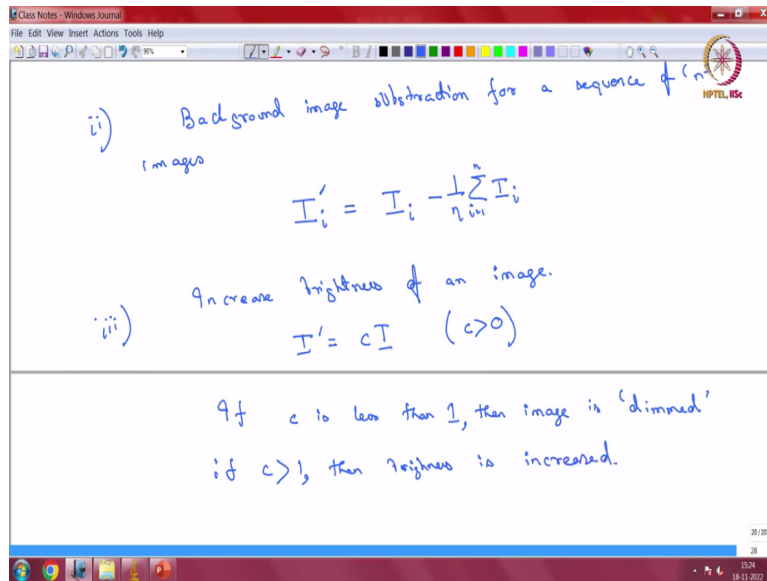 Class Notes - Windows Journal
File Edit View Insert Actions Tools Help
95%
NPTEL, IISc
ii) Background image substraction for a sequence of 'n'
images
I_i' = I_i - 1/n Σ_{i=1}^{n} I_i
iii) Increase brightness of an image.
I' = cI (c>0)
If c is less than 1, then image is 'dimmed'
if c>1, then brighness is increased.
28/28
28
15:24
18-11-2022